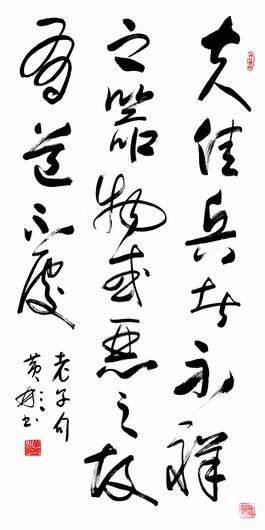 夫佳兵者不祥
之器物或惡之故
有道不處
老子句
黄书